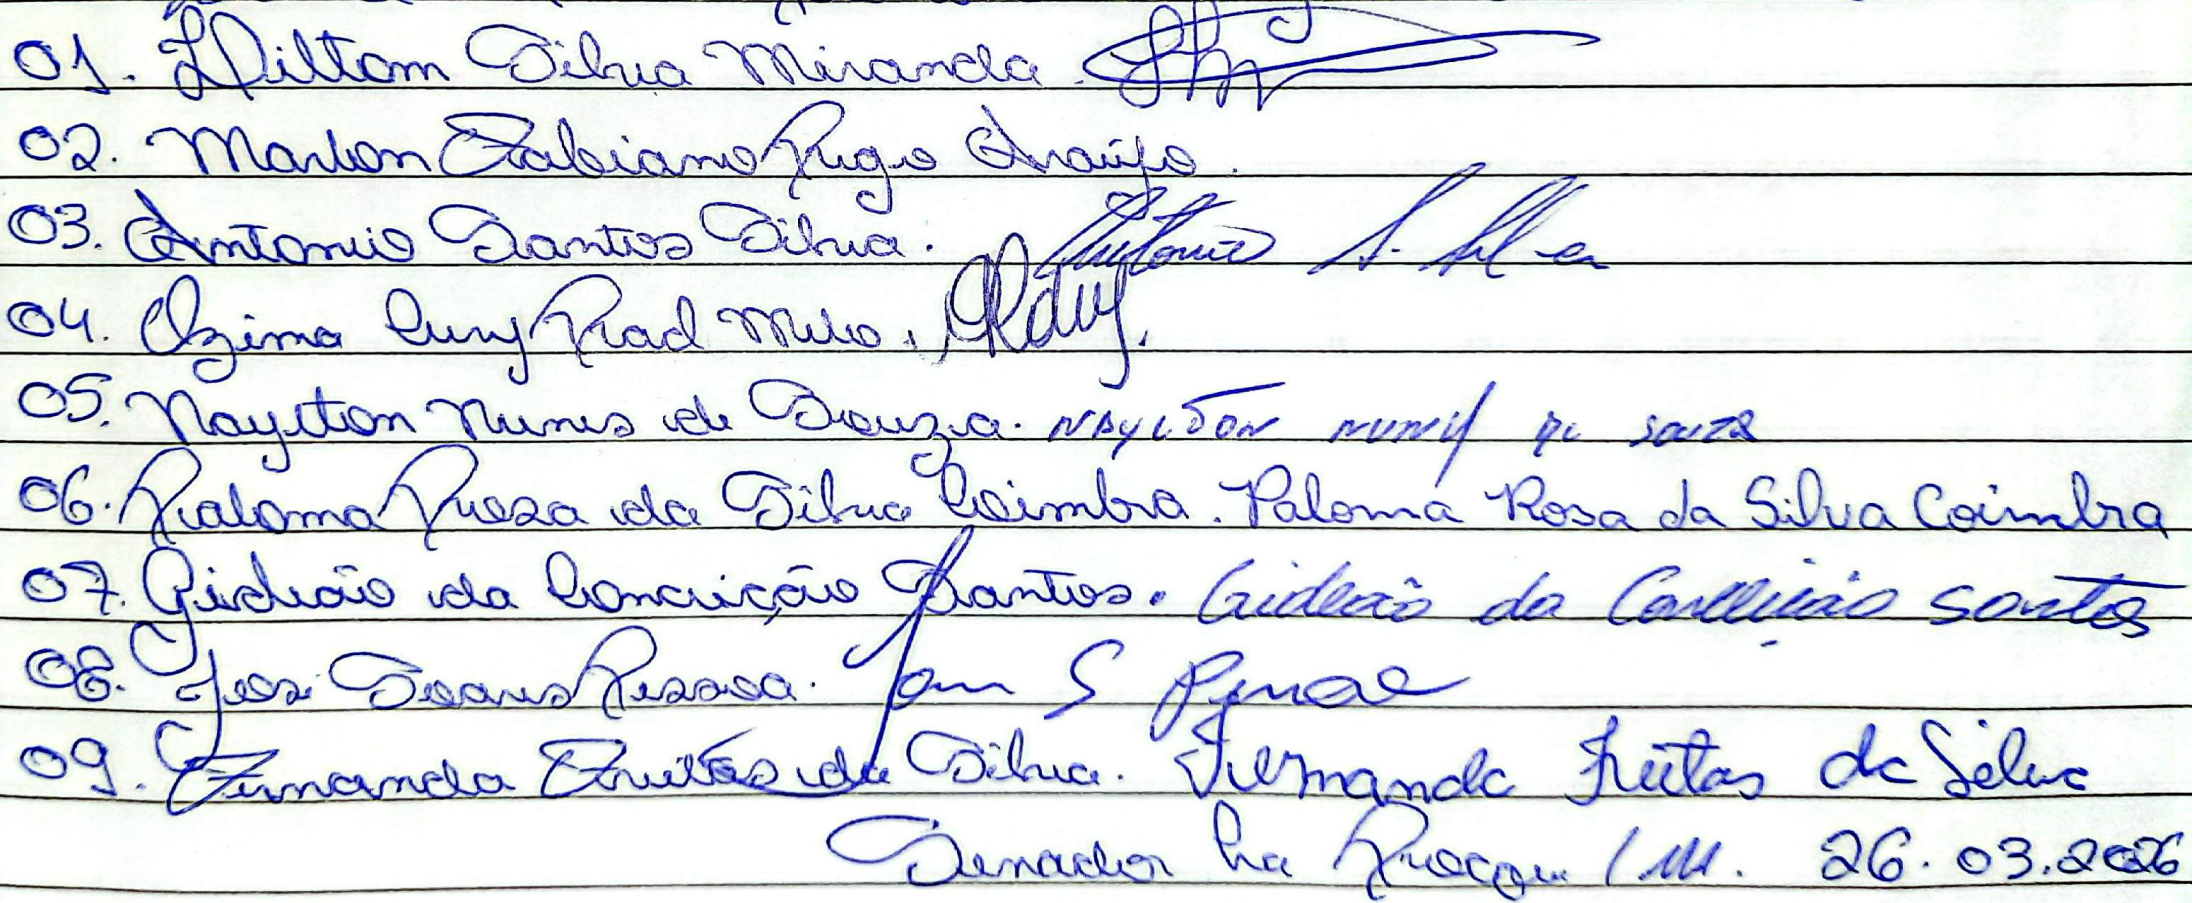 01. Hiltom Silva Miranda.
02. Marlon Fabiano Rego Araújo.
03. Antonio Santos Silva. Antonio S. Silva
04. Ozima Cury Rad Melo.
05. Nayлton Nunes de Souza. NAYLTON NUNES DE SOUZA
06. Paloma Rosa da Silva Coimbra. Paloma Rosa da Silva Coimbra
07. Gideão da Conceição Santos. Gideão da Conceição Santos
08. José Soares Pessoa.
09. Fernanda Freitas da Silva. Fernanda Freitas da Silva
Senador La Rocque / MA. 26.03.2026